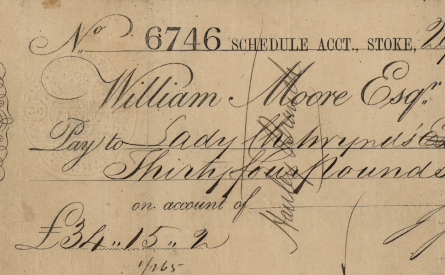 No 6746 SCHEDULE ACCT., STOKE,
William Moore Esqr.
Pay to Lady Chetwynds
Thirty four Pounds
on account of
£34..15..2